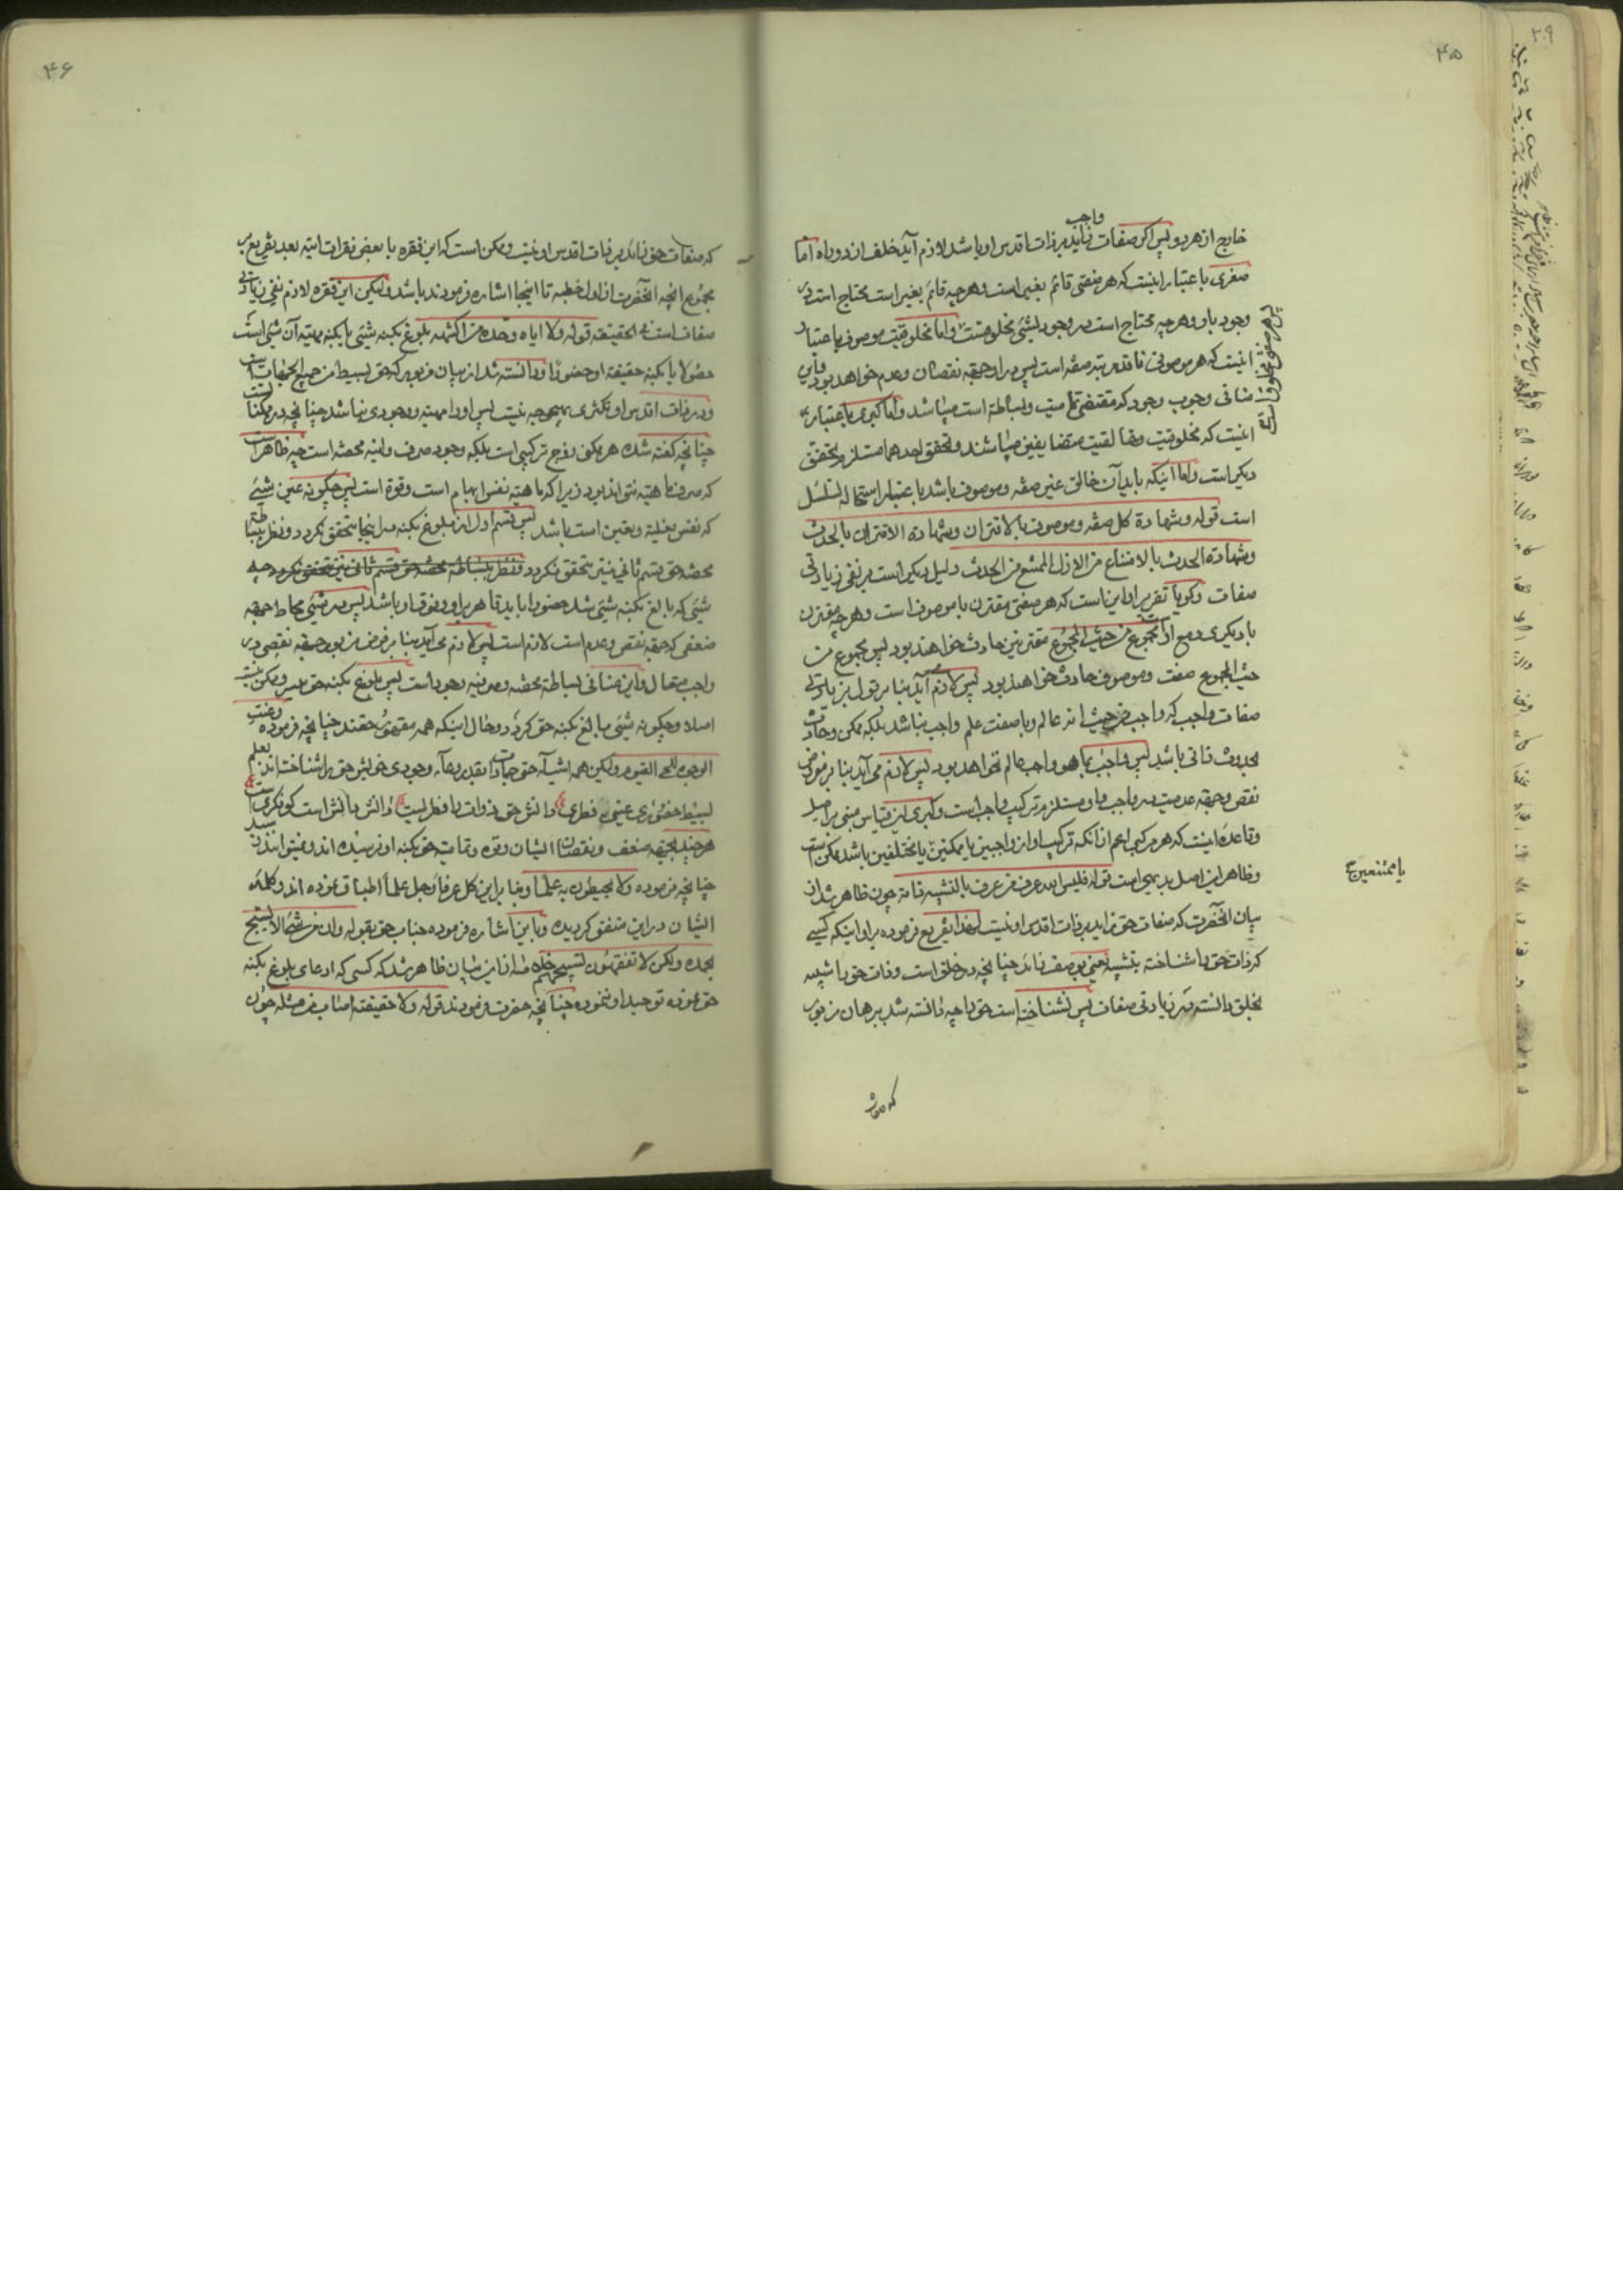 ۴۵
واجب
خارج از هر دو پس اگر صفات زاید بر ذات اقدس او باشد لازم آید خلف از دو راه اما
صغری باعتبار اینست که هر صفتی قائم بغیر است و هر چه قائم بغیر است محتاج است در
وجود باو و هر چه محتاج است در وجود بشیئ مخلوقست و اما مخلوقیت موصوف باعتبار
اینست که هر موصوفی فاقد مرتبه صفة است پس در او جهة نقصان و عدم خواهد بود و این
منافی وجوب وجود که مقتضی تمامیت و بساطة است میباشد و اما کبری باعتبار
اینست که مخلوقیت و خالقیت متضایفین میباشند و تحقق احدهما مستلزم تحقق
دیگر است و اما اینکه باید آن خالق غیر صفه و موصوف باشد باعتبار استحاله تسلسل
است قوله و شهادة کل صفه و موصوف بالاقتران و شهادة الاقتران بالحدث
و شهادة الحدث بالامتناع من الازل الممتنع من الحدث دلیل دیگر است بر نفی زیادتی
صفات و گویا تقریر او این است که هر صفتی مقترن با موصوف است و هر چه مقترن
با دیگری مجموع من حیث المجموع مقترنین حادث خواهند بود پس مجموع من
حیث المجموع صفت و موصوف حادث خواهند بود پس لازم آید بنا بر قول بزیادتی
صفات واجب که واجب من حیث انه عالم و با صفت علم واجب نباشد بلکه ممکن و حادث
بحدوث ذاتی باشد پس واجب بما هو واجب عالم نخواهد بود پس لازم می آید بنا بر مفروض
نقص و جهة عدمیت در واجب و او مستلزم ترکیب واجب است و کبری این قیاس مبنی بر اصل
و قاعده اینست که هر مرکب اعم از آنکه ترکیب او از واجبین یا ممکنین یا مختلفین باشد ممکن است
یا ممتنعین
و ظاهر این اصل بدیهی است قوله فلیس الله عرف من عرف بالتشبیه ذاته چون ظاهر شد از
بیان آنحضرت که صفات حق زاید بر ذات اقدس او نیست لهذا تفریع فرموده بر او اینکه کسی
که ذات حق را شناخته بتشبیه یعنی بوصف زائد چنانچه در خلق است و ذات حق را شبیه
بخلق دانسته در زیادتی صفات پس نشناخته است حق را چه دانسته شد ببرهان مزبور
که صفات
۴۶
که صفات حق زاید بر ذات اقدس او نیست و ممکن است که این فقره با بعضی فقرات اتیه بعد تفریع بر
مجموع آنچه آنحضرت از اول خطبه تا اینجا اشاره فرمودند باشد ولیکن این فقره لازم نفی زیادتی
صفات است فی الحقیقة قوله ولا ایاه وحده من اکتنهه بلوغ بکنه شیئی یا بکنه مهیته آن شیئ است
حصولا یا بکنه حقیقة او حضورا و دانسته شد از بیان مزبور که حق بسیط من جمیع الجهات است
و در ذات اقدس او تکثری بهیچ وجه نیست پس او را مهیته و وجودی نباشد چنانچه در ممکنا
چنانچه گفته شده هر ممکن زوج ترکیبی است بلکه وجود صرف و انیه محضه است چه ظاهر است
که صرف ماهیته نتواند بود زیرا که ماهیته نفس ابهام است و قوة است پس چگونه عین شیئی
که نفس فعلیة و تعین است باشد پس قسم اول از بلوغ بکنه در اینجا تحقق نگردد و نظر ببساطة
محضه حق قسم ثانی نیز تحقق نگردد چه
شیئی که بالغ بکنه شیئی شد حضورا باید قاهر بر او و فوق او باشد پس در شیئی محاط جهة
ضعفی که جهة نقص و عدم است لازم است پس لازم می آید بنا بر فرض مزبور جهة نقصی در
واجب متعال و این منافی بساطة محضه و صرفیه وجود است پس بلوغ بکنه حق میسر و ممکن نیست
اصلا و چگونه شیئی بالغ بکنه حق گردد و حال اینکه همه مقهور حقند چنانچه فرموده و عنت
الوجوه للحی القیوم ولیکن همه اشیآء حتی جمادات بقدر وعآء وجودی خویش حق را شناخته اند بعلم
بسیط حضوری یعنی فطری دانش حق ذوات را فطریست دانش دانش است کو فکریست
هر چند بجهة ضعف و نقصان ایشان و قوة و تمامیت حق بکنه او نرسیده اند و نمیتوانند رسید
چنانچه فرموده ولا یحیطون به علما و بنا بر این کل عرفا و جل علما اطباق نموده اند و کلمه
ایشان در این متفق گردیده و باین اشاره فرموده جناب حق بقوله وان من شئ الا یسبح
بحمده ولکن لا تفقهون تسبیحهم پس از این بیان ظاهر شد که کسی که ادعای بلوغ بکنه
حق نموده توحید او ننموده چنانچه حضرت فرمودند قوله ولا حقیقته اصاب من مثله چون